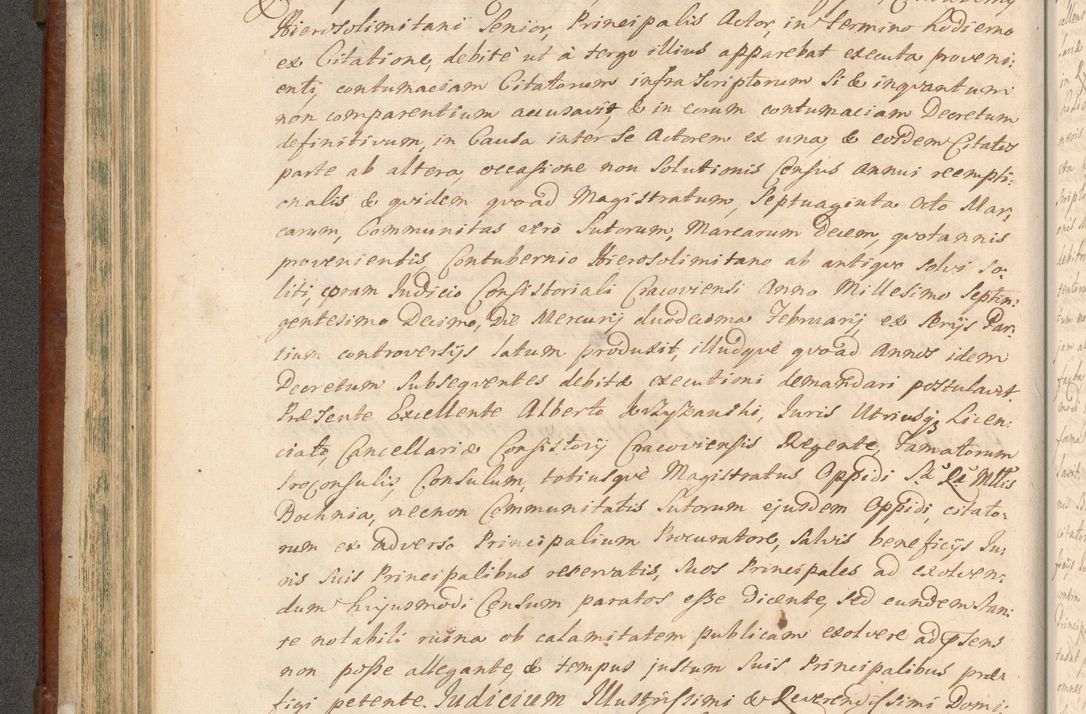 Hierosolimitani Senior, Principalis Actor, in termino hodierno
ex Citatione, debitè ut à tergo illius apparebat executa proveni:
enti, contumaciam Citatorum infrascriptorum Si & inqvantum
non comparentium accusavit, & in eorum contumaciam Decretum
definitivum, in Causa inter Se Actorem ex una, & eosdem Citatos
parte ab altera occasione non Solutionis Census Annui reempti:
onalis & qvidem qvoad Magistratum, Septuaginta Octo Mar,
carum, Communitas verò Sutorum, Marcarum Decem, qvotannis
provenientis Contubernio Hierosolimitano ab antiqvo Solvi So:
liti, coram Judicio Consistoriali Cracoviensi Anno Millesimo Septin:
gentesimo Decimo, Die Mercurij duodecima Februarij ex Serijs Par:
tium controversijs latum produxit, illudqve qvoad Annos idem
Decretum Subseqventes debitæ executioni demandari postulavit.
Præsente Excellente Alberto Juris Utriusqz Licen:
ciato, Cancellariæ Consistorij Cracoviensis Regente, Famatorum
Proconsulis, Consulum, totiusqve Magistratus Oppidi S. R. Mttis
Bochnia, necnon Communitatis Sutorum ejusdem Oppidi, citato:
rum ex adverso Principalium Procuratore, Salvis beneficijs Ju:
ris Suis Principalibus reservatis, Suos Principales ad exolven:
dum hujusmodi Censum paratos esse Dicente, sed eundem Stan:
te notabili ruina ob calamitatem publicam exolvere ad psens
non posse allegante, & tempus justum Suis Principalibus præ
figi petente. Judicium Illustrissimi & Reverendissimi Domi: